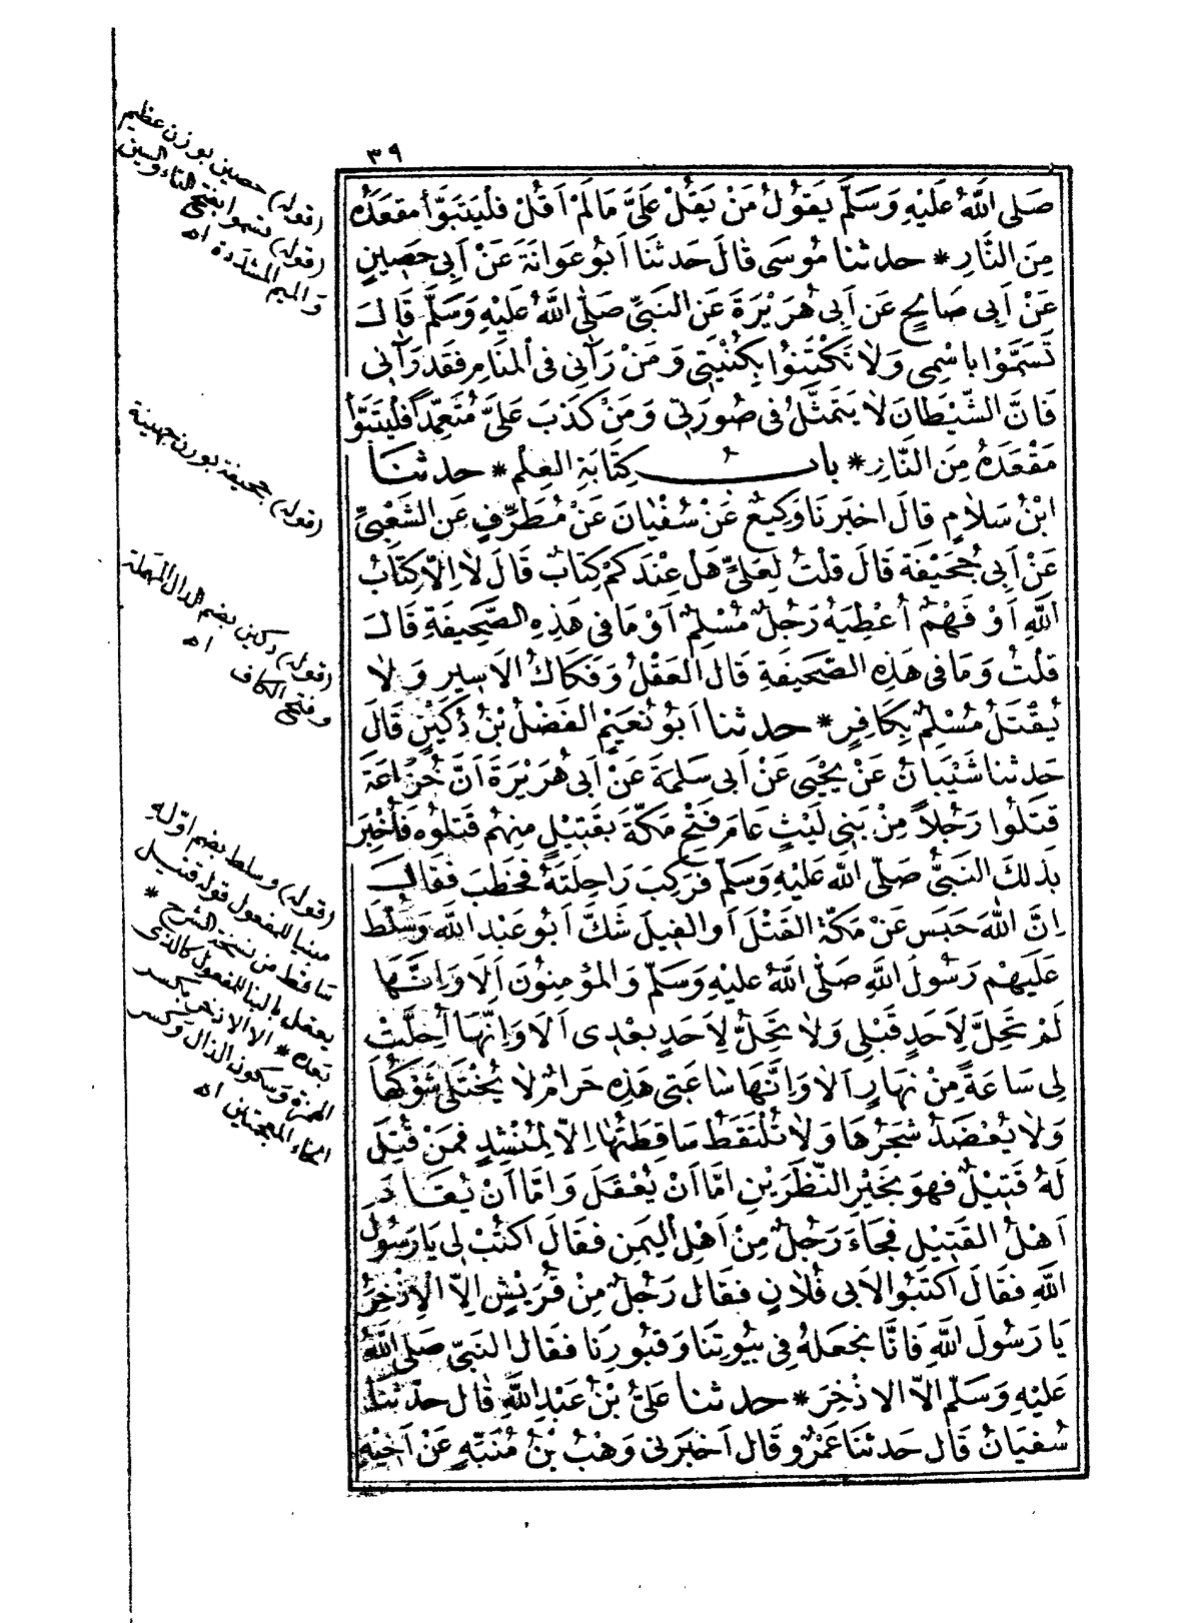 ٣٩
صَلى اللهُ عَلَيْهِ وَسَلَّم يَقوُلُ مَنْ يَقُلْ عَلَىَّ مَالَمْ اَقُلْ فلْيَتَبَوَّأ مقعَدَهُ
مِنَ النَّارِ * حدثنا مُوسَى قالَ حَدثنَا اَبُوعَوَانَةَ عَنْ اَبِى حَصِينٍ
عَنْ اَبِى صَالحٍ عَن اَبِى هُرَيْرَةَ عَن النَبىِّ صَلّى اللهُ عَلَيْهِ وَسَلَّمَ قَالَ
تَسَمَّوْا باسْمِى وَلا تَكْتَنوُا بِكُنْيَتِى وَمَنْ رَآنى فى اْلمنَامِ فقَد رَآنى
فَاِنَّ الشّيْطانَ لا يَتَمثَّلُ فى صُورَتى وَمَنْ كَذَبَ عَلَىَّ مُتَعمِّداً فلْيَتَبَوَّأْ
مَقْعَدَهُ مِنَ النَّارِ * بابُ كِتَابَةِ العِلْمِ * حدثنَا
ابْنُ سَلامٍ قالَ اخبَرنَا وَكيعٌ عَنْ سُفْيانَ عَنْ مُطَرِّفٍ عَن الشَعْبىِّ
عَنْ اَبِى جُحَيْفَةَ قَالَ قلْتُ لِعَلىٍّ هَلْ عِنْدَكُمْ كِتَابٌ قَالَ لاَ اِلاّ كِتَابُ
اللهِ اَوْ فَهْمٌ اُعْطِيَهُ رَجُلٌ مُسْلِمٌ اَوْ مَا فى هَذِهِ الصَّحِيفَةِ قَالَ
قلْتُ وَمَا فى هَذِهِ الصَحَيفَةِ قَال العَقْلُ وَفَكَاكُ الاَسِيرِ وَلا
يُقْتَلُ مُسْلِمٌ بِكَافِرٍ * حدثنا اَبُو نُعَيْمٍ الفَضْلُ بْنُ دُكَيْنٍ قَالَ
حَدثنا شَيْبَانُ عَنْ يَحْيَى عَنْ اَبى سَلمَةَ عَنْ اَبى هُرَيْرَةَ اَنَّ خُزَاعَةَ
قَتَلُوا رَجُلاً مِنْ بَنِى لَيْثٍ عَامَ فَتْحِ مَكّةَ بقَتِيْلٍ مِنهُم قَتلوُه فَأخْبِرَ
بِذلكَ النَبىُّ صَلّى الله عَليْهِ وَسَلّم فرَكِبَ رَاحِلَتَهُ فخَطبَ فَقَالَ
اِنَّ اللهَ حَبَسَ عَنْ مَكّةَ القَتْلَ اَوِ الفِيلَ شَكَّ اَبُو عَبْدِ اللهِ وَسُلّطَ
عَلَيهْم رَسُولُ اللهِ صَلّى اللهُ عَليْهِ وَسَلّم وَالمؤمِنوُن اَلاَ وَاِنَّهَا
لَمْ تَحِلَّ لِأَحَدٍ قَبْلِى وَلا تَحِلُّ لِأَحَدٍ بعْدِى اَلاَ وَاِنّهَا اُحِلَّتْ
لِى سَاعَةً مِنْ نَهَارٍ اَلاَ وَاِنَّهَا سَاعَتى هَذِهِ حَرَامٌ لا يُخْتَلَى شَوْكُهَا
وَلا يُعْضَدُ شجَرُهَا وَلا تُلْتَقطُ سَاقِطَتُهَا اِلاّ لِمُنْشِدٍ فمَنْ قُتِلَ
لَهُ قَتِيْلٌ فهوَ بخَيْرِ النّظَرَيْنِ اِمَّا اَنْ يُعْقلَ وَاِمَّا اَنْ يُقَادَ
اَهْلُ القَتِيْلِ فجَاءَ رَجُلٌ مِنْ اَهْلِ اليَمنِ فقَال اكتُبْ لِى يَا رَسُولَ
اللهِ فقَالَ اكتبُوا لاَبى فُلانٍ فقَال رَجُلٌ مِنْ قُرَيْشٍ اِلاّ الْاِذْخِرَ
يَا رَسُولَ اللهِ فَاِنَّا نجعَلهُ فِى بيُوتِنَا وَقبُورِنَا فقَالَ النَبىّ صَلى اللهُ
عَليْهِ وَسَلّم اِلاّ الاِذْخِرَ * حدثنا عَلىُّ بْنُ عَبْدِ اللهِ قال حَدّثنَا
سُفيَانُ قَال حَدثنَا عَمْرٌو قَال اَخبَرنى وَهْبُ بْنُ مُنَبّهٍ عَنْ اَخِيْهِ
(قوله) حصين بوزن عظيم
(قوله) تسموا بفتح التاء والسين
والميم المشددة اه
(قوله) جحيفة بوزن جهينة
(قوله) دكين بضم الدال المهملة
وفتح الكاف اه
(قوله) وسلط بضم اوّله
مبنيا للمفعول قوله قتيل
ساقط من نسخة الشرح *
يعقل بالبنا للمفعول كالذى
بعده * الا الاذخر بكسر
الهمزة وسكون الذال وكسر
الخاء المعجمتين اه